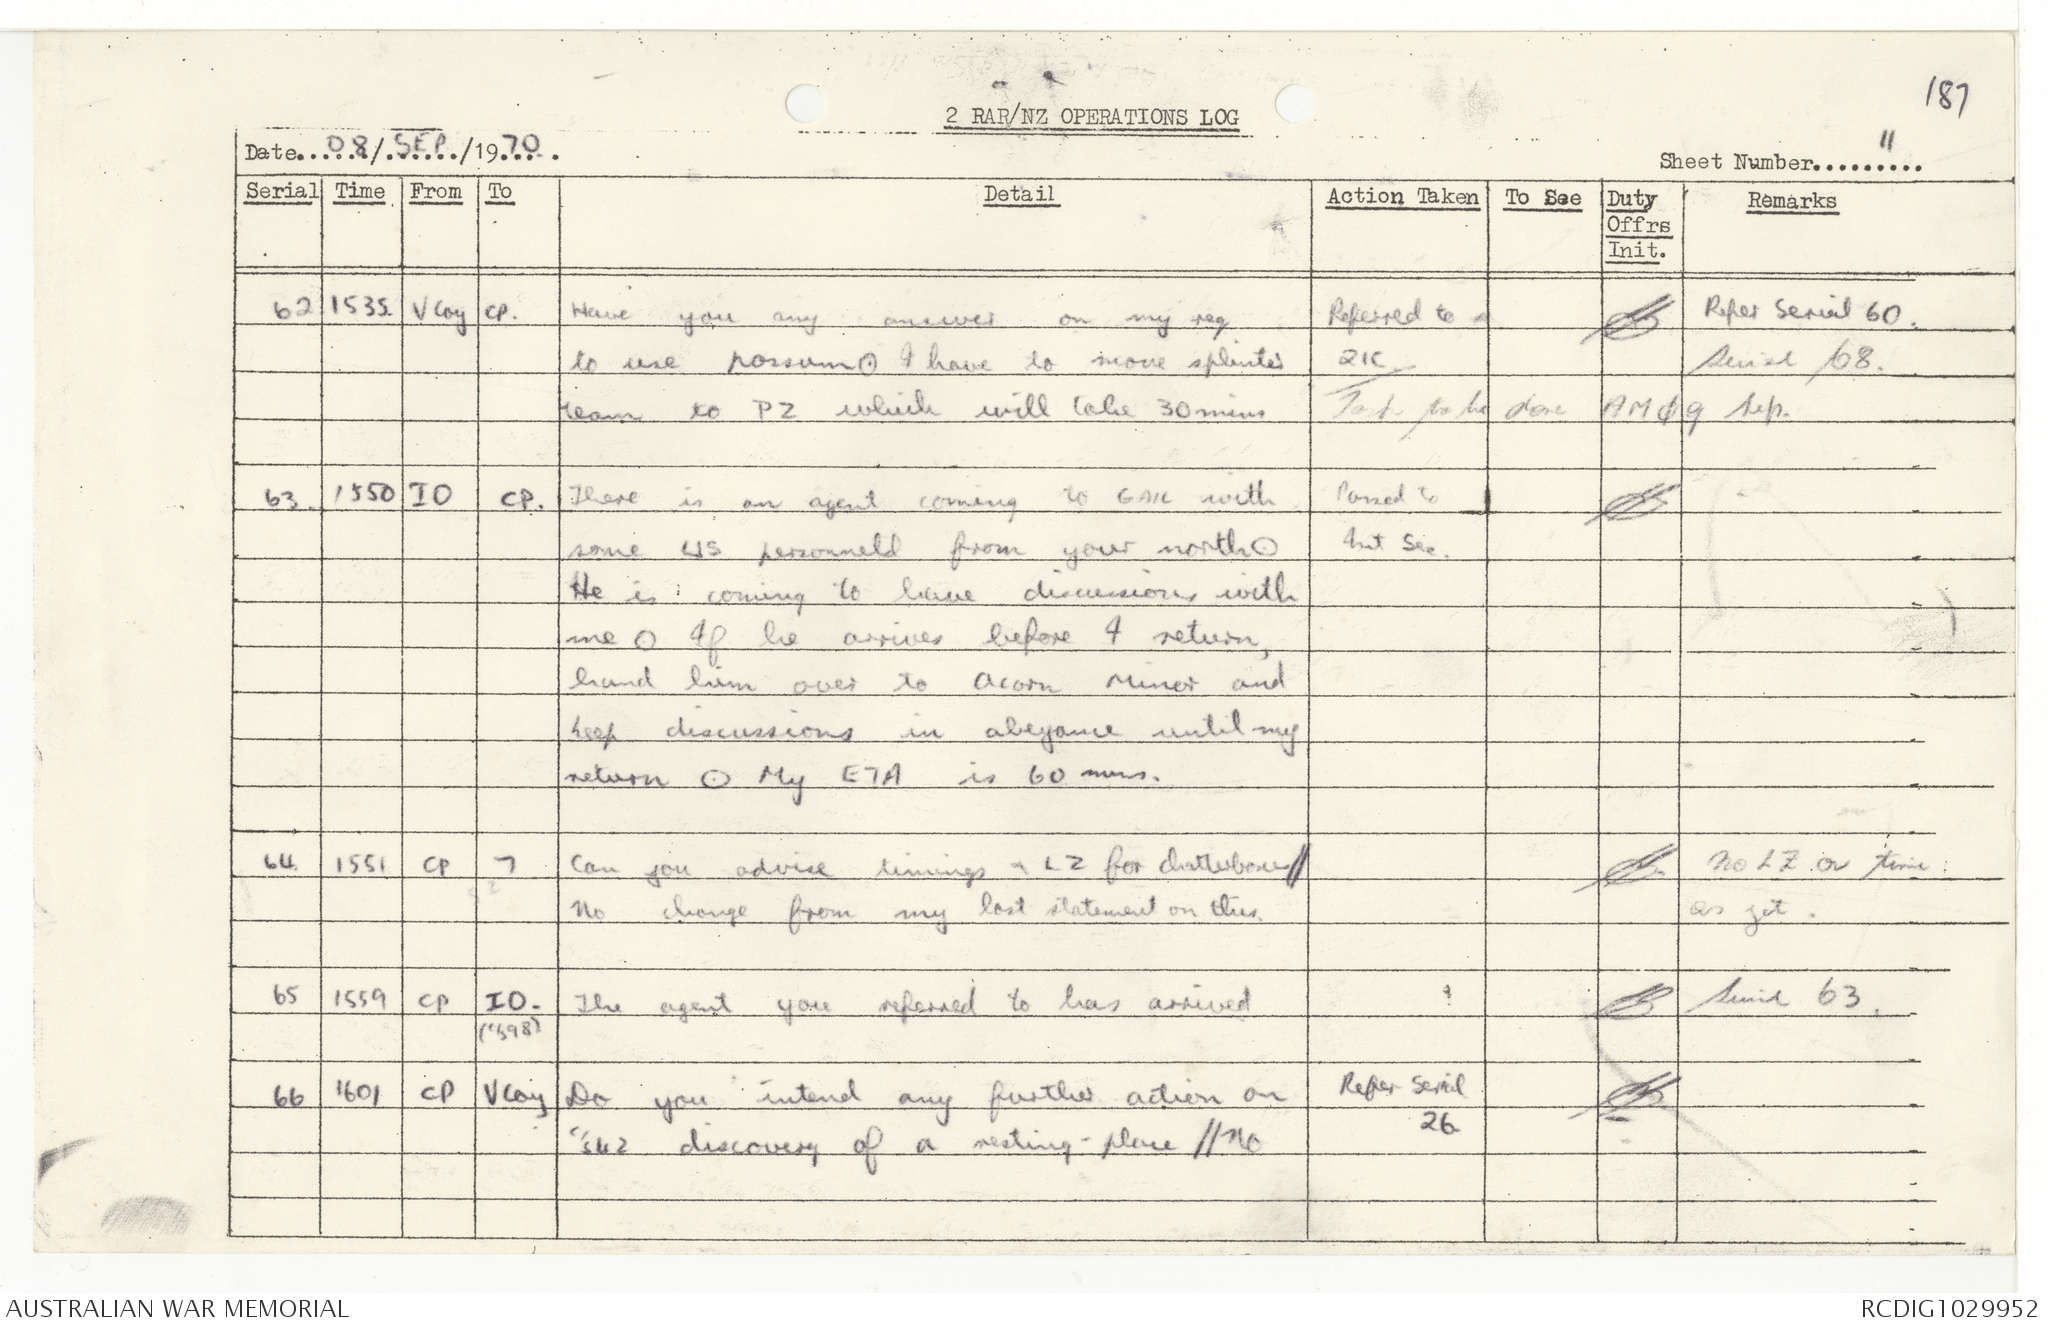 187
2 RAR/NZ OPERATIONS LOG
Date 08/SEP/1970
Sheet Number 11
Serial Time From To Detail Action Taken To See Duty Offrs Init. Remarks
62 1535 V Coy CP. Have you any answer on my req Referred to Refer Serial 60.
to use possum ⊙ I have to move splinter 2IC Serial 68.
team to PZ which will take 30 mins Task to be done AM 09 Sep.
63. 1550 IO CP. There is an agent coming to with Passed to
some US from your north ⊙ Int Sec.
He is coming to have discussions with
me ⊙ If he arrives before I return,
hand him over to Acorn Minor and
keep discussions in abeyance until my
return ⊙ My ETA is 60 mins.
64. 1551 CP 7 Can you advise timings + LZ for // No LZ or time
No change from my last statement on this as yet.
65 1559 CP IO. The agent you referred to has arrived Serial 63.
66 1601 CP V Coy Do you intend any further action on Refer Serial
discovery of a resting-place // No 26
AUSTRALIAN WAR MEMORIAL
RCDIG1029952